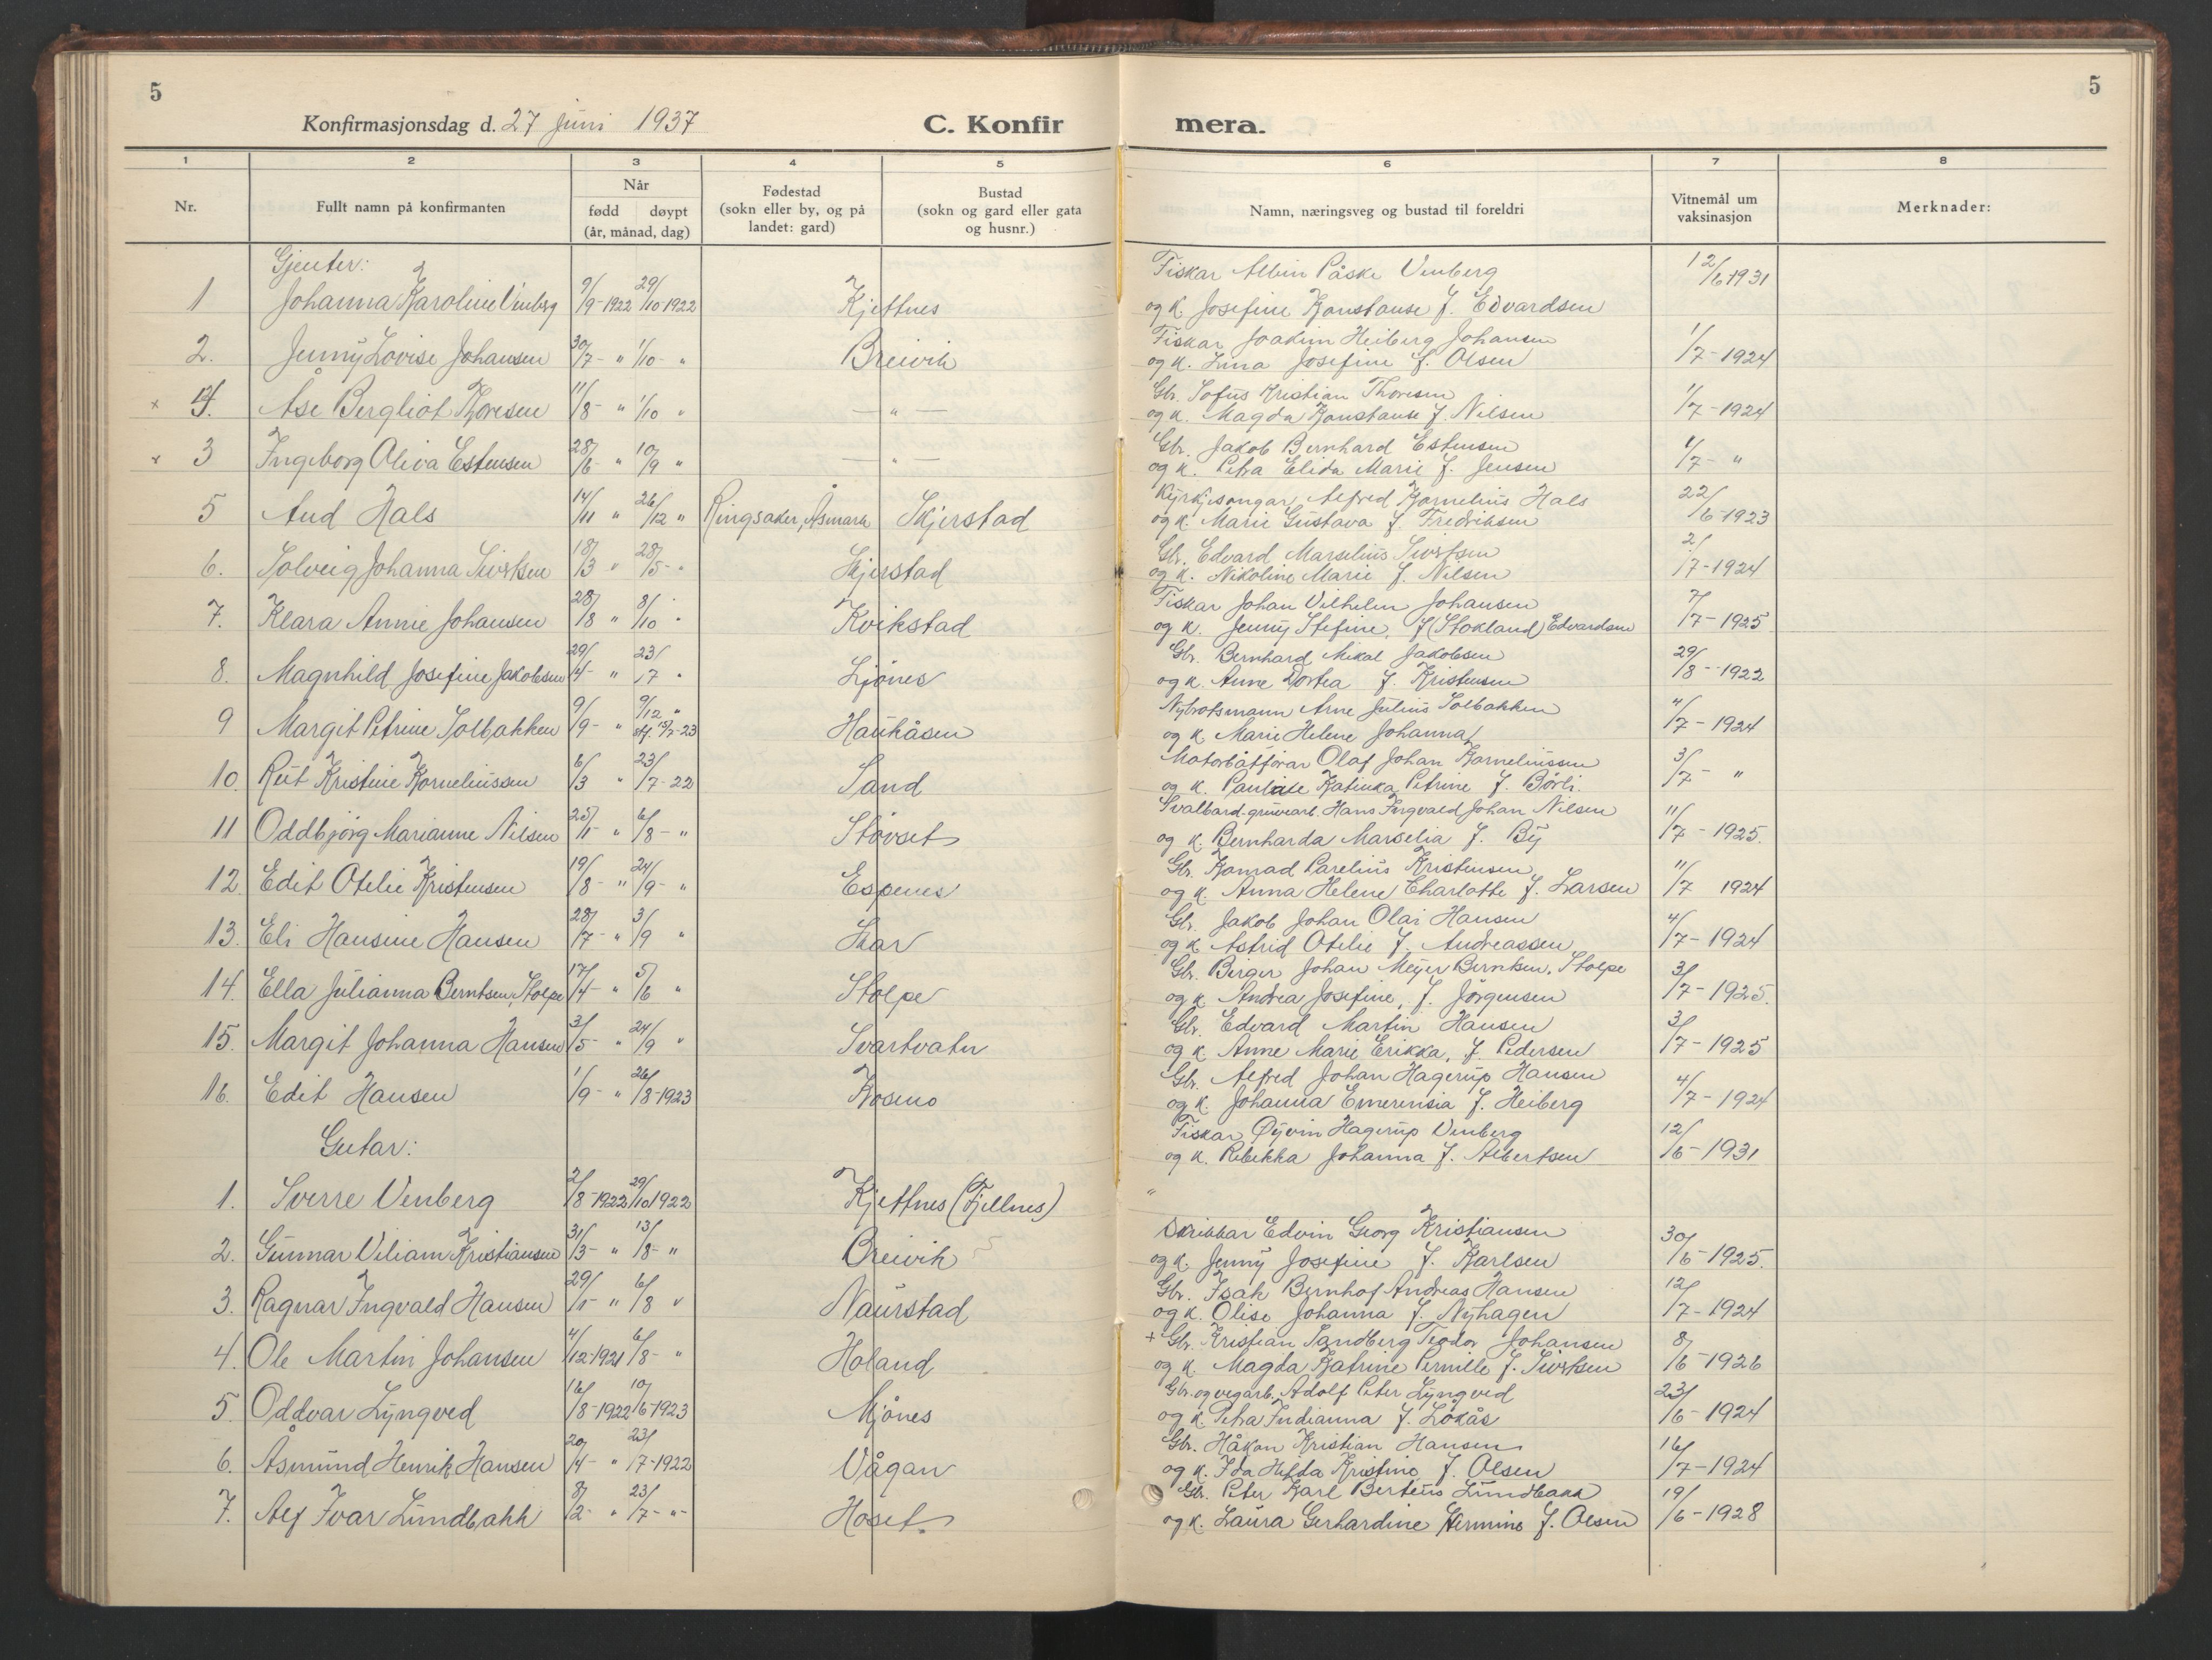 5
Konfirmasjonsdag d. 27 juni 1937
C. Konfir
1 2 3 4 5
Nr.
Fullt namn på konfirmanten
Når
fødd døypt
(år, månad, dag)
Fødestad
(sokn eller by, og på
landet: gard)
Bustad
(sokn og gard eller gata
og husnr.)
Gjenter:
1 Johanna Karoline Venberg 9/9-1922 29/10 1922 Kjettnes
2. Jenny Lovise Johansen 30/7- " 1/10- " Breivik
× 4. Åse Bergliot Thoresen 11/8- " 1/10 " — " —
× 3 Ingeborg Oliva Estensen 28/6- " 10/9 " — " —
5 Aud Hals 14/11 " 26/12 " Ringsaker, Åsmark Skjerstad
6. Solveig Johanna Sivertsen 18/3 " 28/5- " Skjerstad
7. Klara Annie Johansen 28/8 " 8/10 " Kvikstad
8. Magnhild Josefine Jakobsen 29/4- " 23/7 " Ljönes
9 Margit Petrine Solbakken 9/9- " 9/12 " stf. 15/7-23 Haukåsen
10. Rut Kristine Kornelinssen 6/3 " 23/7-22 Sand
11 Oddbjörg Marianne Nilsen 25/1- " 6/8- " Stövset
12. Edit Otelie Kristensen 19/8- " 24/9- " Espenes
13. Eli Hansine Hansen 28/7- " 3/9 " Skar
14. Ella Julianna Berntsen, Stolpe 17/4- " 5/6 " Stolpe
15. Margit Johanna Hansen 3/5- " 24/9 " Svartvatn
16. Edit Hansen 1/9- " 26/8-1923 Kosmo
Gutar:
1. Sverre Venberg 2/8-1922 29/10 1922 Kjettnes (Fjellnes)
2. Gunnar Viliam Kristiansen 31/3- " 13/8- " Breivik
3. Ragnar Ingvald Hansen 29/1- " 6/8 " Naurstad
4. Ole Martin Johansen 4/12-1921 6/8- " Holand
5. Oddvar Lyngved 16/8-1922 10/6-1923 Mjönes
6. Åsmund Henrik Hansen 20/4- " 23/7-1922 Vågan
7. Alf Ivar Lundbakk 8/2- " 23/7- " - Hoset
5
mera.
6 7 8
Namn, næringsveg og bustad til foreldri
Vitnemål um
vaksinasjon
Merknader:
Fiskar Albin Påske Venberg 12/6 1931
og k. Josefine Konstanse f. Edvardsen
Fiskar Joakim Heiberg Johansen 1/7-1924
og k. Inna Josefine f. Olsen
Gbr. Sofus Kristian Thoresen 1/7-1924
og k. Magda Konstanse f. Nilsen
Gbr. Jakob Bernhard Estensen 1/7- "
og k. Petra Elida Marie f. Jensen
Kyrkjesongar Alfred Kornelius Hals 22/6-1923
og k. Marie Gustava f. Fredriksen
Gbr. Edvard Marselius Sivertsen 2/7-1924
og k. Nikoline Marie f. Nilsen
Fiskar Johan Vilhelm Johansen 7/7-1925
og k. Jenny Stefine, f (Stokland) Edvardsen
Gbr. Bernhard Mikal Jakobsen 29/8-1922
og k. Anne Dortea f. Kristensen
Nybrotsmann Arne Julius Solbakken 11/7-1924
og k. Marie Helene Johanna
Motorbåtförar Olaf Johan Kornelinssen 3/7- "
og k. Pauline Katinka Petrine f. Børli.
Svalbard-gruvearb. Hans Ingvald Johan Nilsen 11/7-1925.
og k. Bernharda Marselia f. By
Gbr. Konrad Parelius Kristensen 11/7 1924
og k. Anna Helene Charlotte f. Larsen
Gbr. Jakob Johan Olai Hansen 4/7-1924
og k Astrid Otelie f. Andreassen
Gbr. Birger Johan Meyer Berntsen, Stolpe 3/7-1925.
og k Andrea Josefine, f. Jörgensen
Gbr. Edvard Martin Hansen 3/7-1925
og k. Anne Marie Erikka, f. Pedersen
Gbr. Alfred Johan Hagerup Hansen 4/7-1924
og k. Johanna Emerensia f. Heiberg
Fiskar Øyvin Hagerup Venberg 12/6-1931
og k. Rebekka Johanna f. Albertsen
"
Skribbar Edvin Georg Kristiansen 30/6-1925.
og k. Jenny Josefine f. Karlsen
Gbr. Isak Bernhof Andreas Hansen 12/7-1924
og k. Olise Johanna f. Nyhagen
+ Gbr. Kristian Sandberg Teodor Johansen 8/6-1926
og k Magda Katrine Pernille f. Sivertsen
Gbr. og vegarb. Adolf Peter Lyngved 23/6-1924
og k Petra Indianna f. Lökås
Gbr. Håkon Kristian Hansen 16/7-1924
og k. Ida Hefda Kristine f. Olsen
Gbr. Peter Karl Berteus Lundbakk 19/6-1928
og k. Laura Gerhardine Hermine f. Olsen